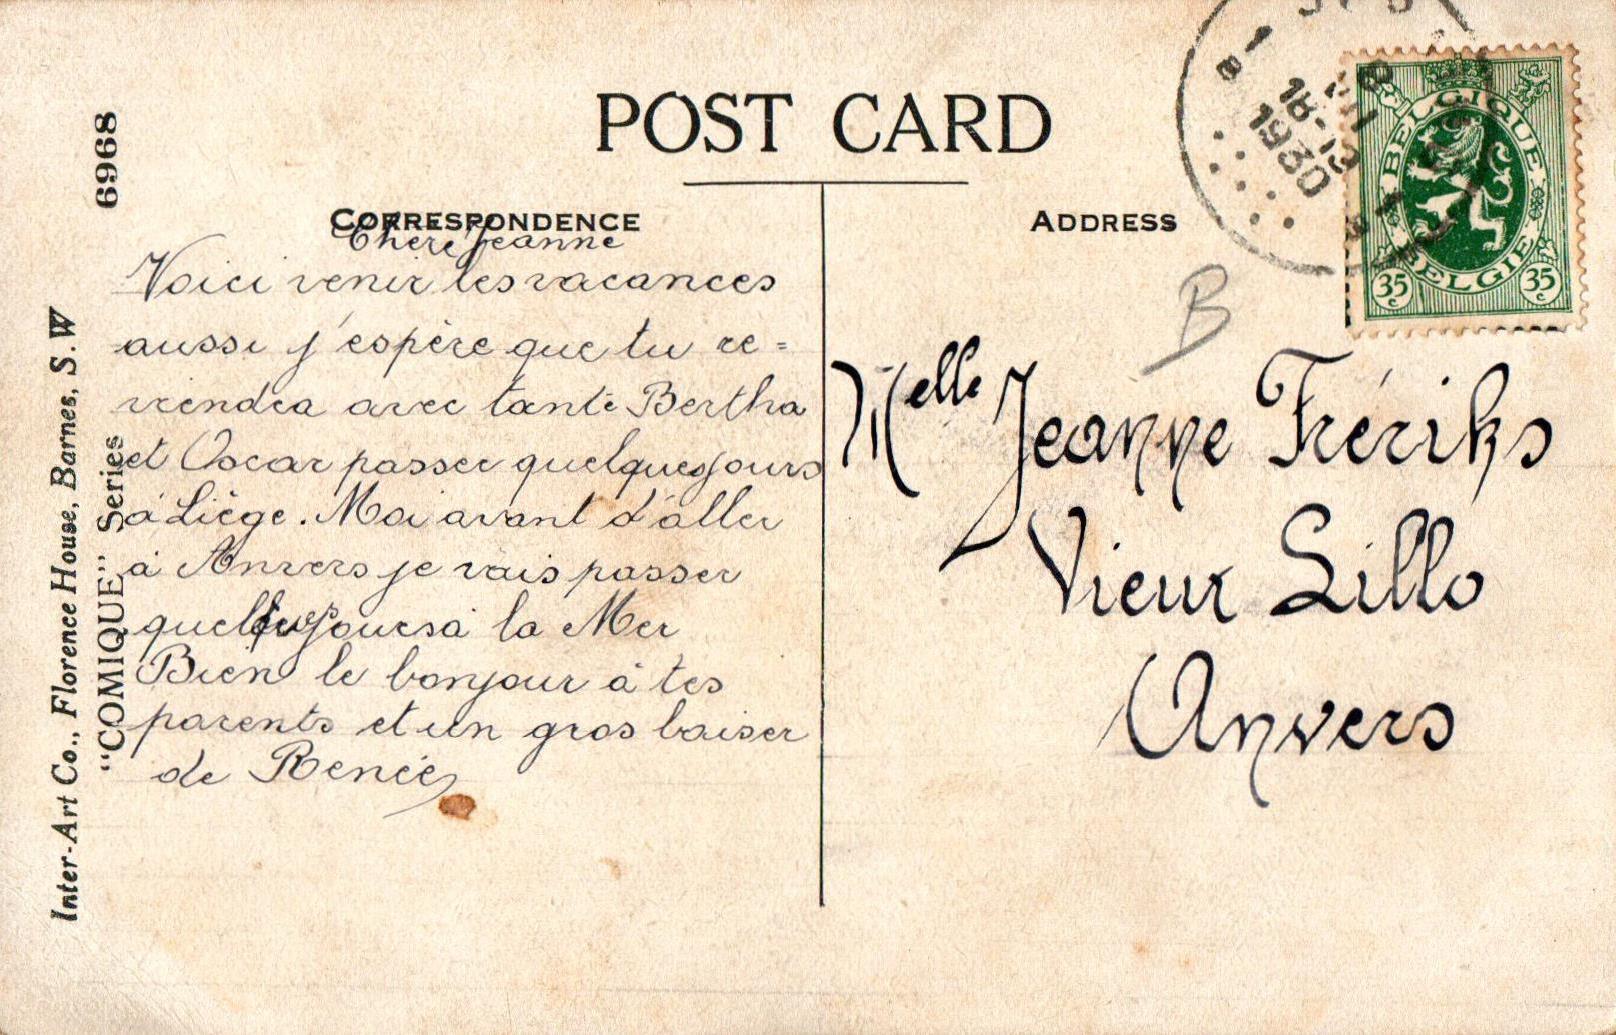 POST CARD
CORRESPONDENCE
Chère Jeanne
Voici venir les vacances
aussi j'espère que tu re=
viendra avec tante Bertha
et Oscar passer quelques jours
à Liége. Moi avant d'aller
à Anvers je vais passer
quelques jours à la Mer
Bien le bonjour à tes
parents et un gros baiser
de Renée
ADDRESS
B
Melle Jeanne Frériks
Vieux Lillo
Anvers
BELGIQUE
BELGIË
35 c
35 c
18-19
1930
6968
"COMIQUE" Series
Inter-Art Co., Florence House, Barnes, S.W